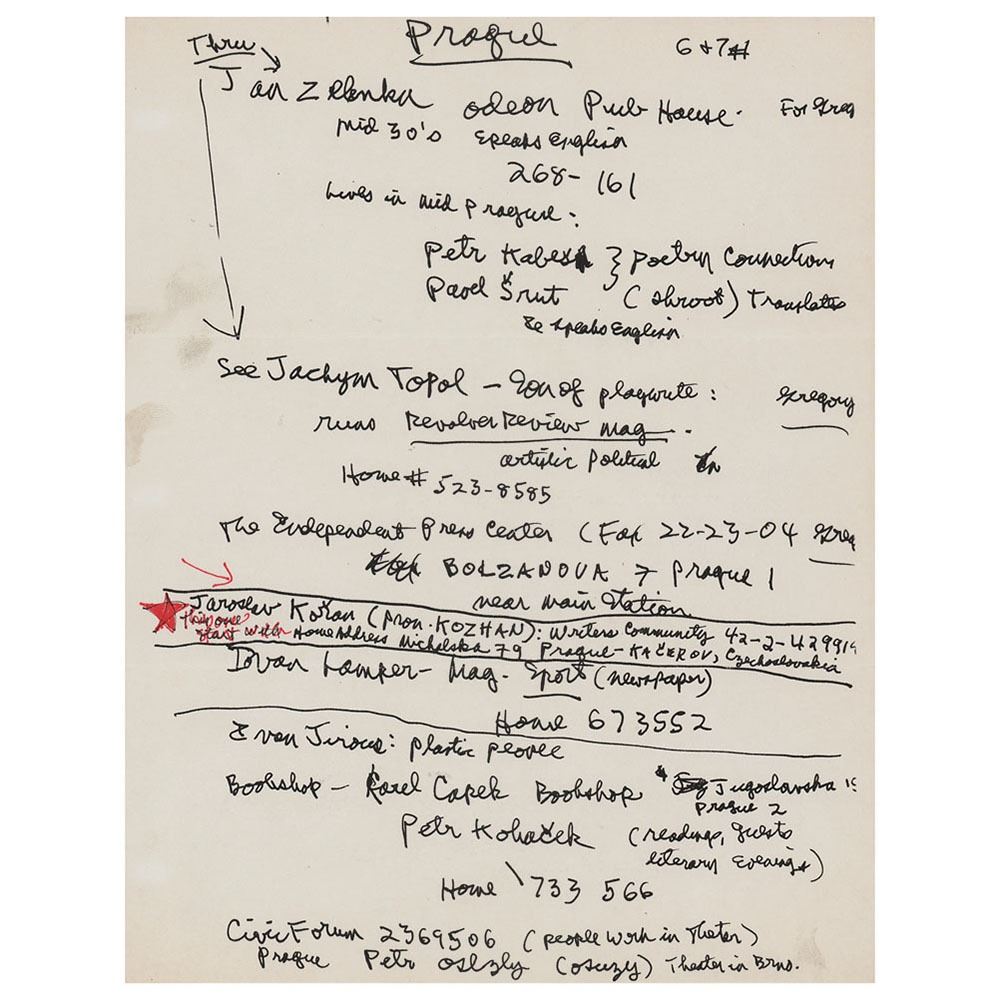 Thru
Prague
6 + 7#
Jan Zelenka odeon Pub House. For Greg
Mid 30's speaks english
268-161
Lives in mid prague:
Petr Kabes } poetry Connection
Pavel Šrut } (shroot) Translates
& speaks english
See Jachym Topol – Son of playwrite: Gregory
runs Revolver Review mag.
artistic political
Home # 523-8585
The Endependent Press Center (Fax 22-23-04 Greg
BOLZANOVA 7 prague 1
near main Station
Jaroslav Kořan (pron. KOZHAN): Writers Community 42-2-42991
this one
start with Home Address Michelska 79 Prague – KAČEROV, Czechoslovakia
Ivan Lamper – Mag. Sport (newspaper)
Home 673552
Evon Jirous: plastic people
Bookshop – Karel Capek Bookshop Jugoslavska
prague 2
Petr Kohaček (readings, guests
literary evenings)
Home 733 566
Civic Forum 2369506 (people work in Theter)
Prague Petr oslzly (osuzy) Theater in Brno.